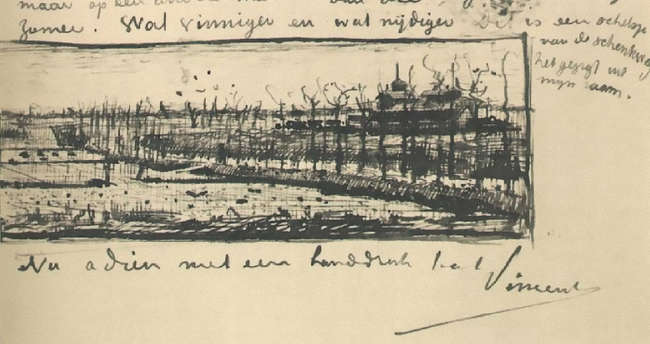 maar op een
zomer. Wat vinniger en wat nijdiger Dit is een schetsje
van de schenkweg
het gezigt uit
mijn raam.
Nu adieu met een handdruk t. à t.
Vincent